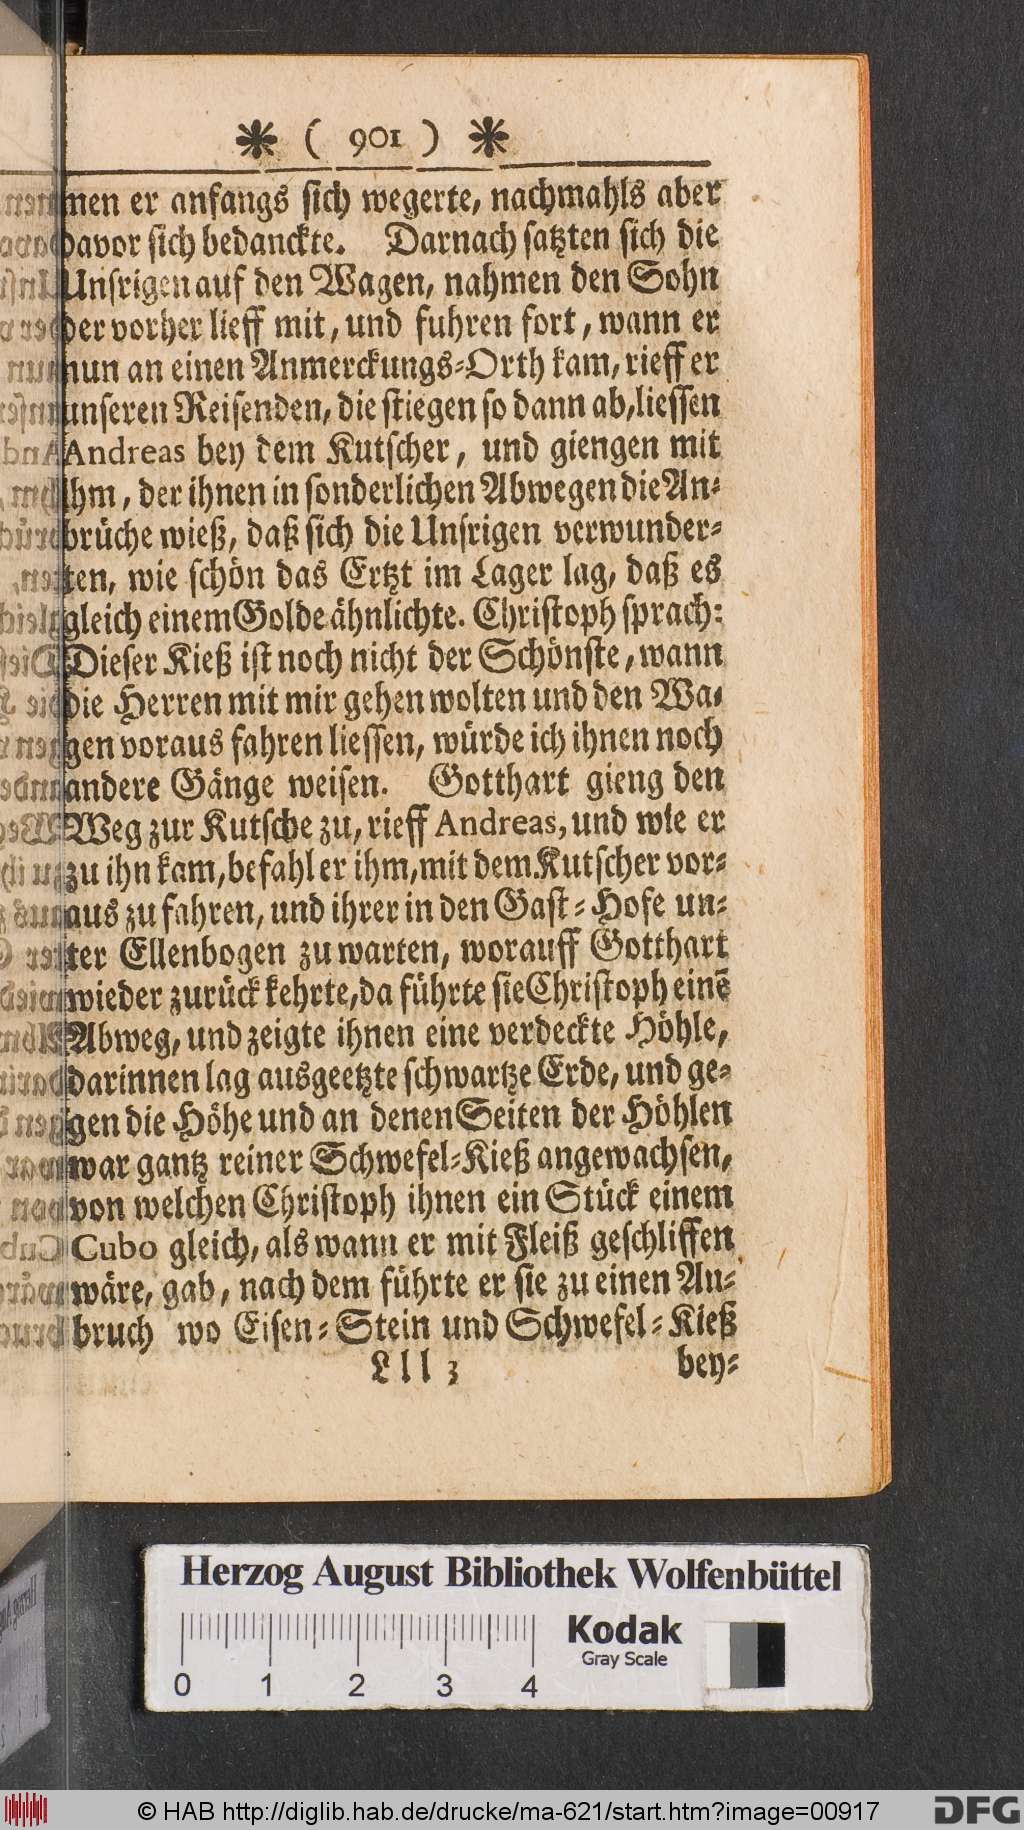 * ( 901 ) *
men er anfangs sich wegerte, nachmahls aber
davor sich bedanckte. Darnach satzten sich die
Unsrigen auf den Wagen, nahmen den Sohn
der vorher lieff mit, und fuhren fort, wann er
nun an einen Anmerckungs-Orth kam, rieff er
unseren Reisenden, die stiegen so dann ab, liessen
Andreas bey dem Kutscher, und giengen mit
ihm, der ihnen in sonderlichen Abwegen die An-
brüche wieß, daß sich die Unsrigen verwunder-
ten, wie schön das Ertzt im Lager lag, daß es
gleich einem Golde ähnlichte. Christoph sprach:
Dieser Kieß ist noch nicht der Schönste, wann
die Herren mit mir gehen wolten und den Wa-
gen voraus fahren liessen, würde ich ihnen noch
andere Gänge weisen. Gotthart gieng den
Weg zur Kutsche zu, rieff Andreas, und wie er
zu ihn kam, befahl er ihm, mit dem Kutscher vor-
aus zu fahren, und ihrer in den Gast-Hofe un-
ter Ellenbogen zu warten, worauff Gotthart
wieder zurück kehrte, da führte sie Christoph einē
Abweg, und zeigte ihnen eine verdeckte Höhle,
darinnen lag ausgeetzte schwartze Erde, und ge-
gen die Höhe und an denen Seiten der Höhlen
war gantz reiner Schwefel-Kieß angewachsen,
von welchen Christoph ihnen ein Stück einem
Cubo gleich, als wann er mit Fleiß geschliffen
wäre, gab, nach dem führte er sie zu einen An-
bruch wo Eisen-Stein und Schwefel-Kieß
Lll 3 bey-
Herzog August Bibliothek Wolfenbüttel
Kodak
Gray Scale
0 1 2 3 4
© HAB http://diglib.hab.de/drucke/ma-621/start.htm?image=00917
DFG